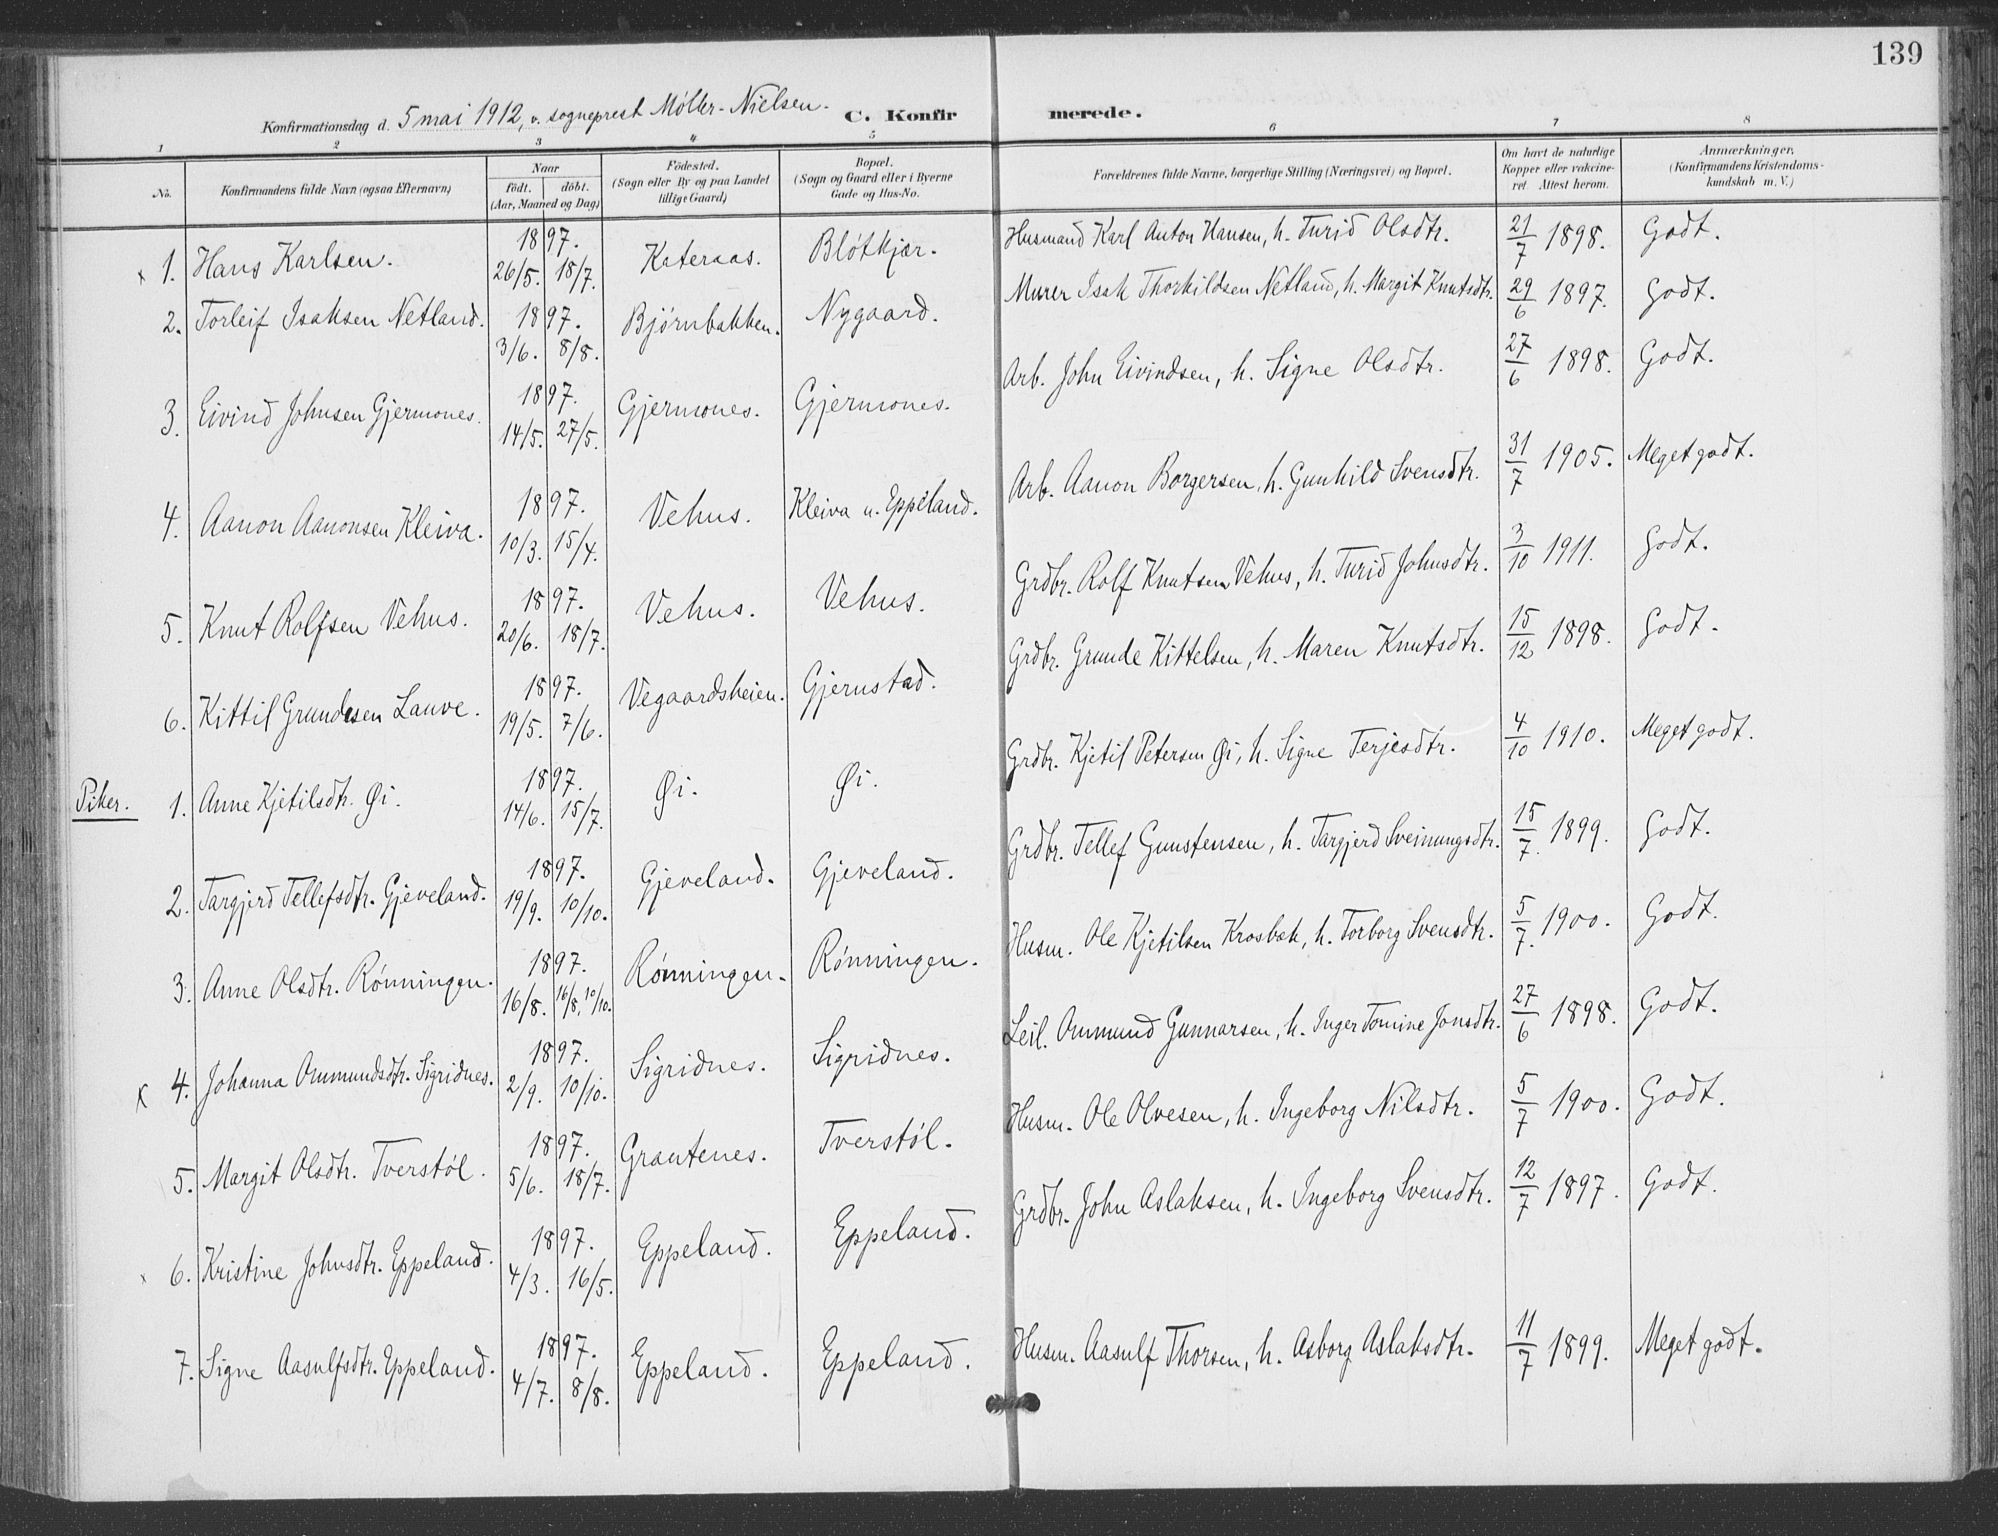 139
Konfirmationsdag d. 5 mai 1912, v. sogneprest Møller-Nielsen. C. Konfirmerede.
1 2 3 4 5 6 7 8
No. Konfirmandens fulde Navn (ogsaa Efternavn) Naar født. døbt. (Aar, Maaned og Dag) Fødested. (Sogn eller By og paa Landet tillige Gaard) Bopæl. (Sogn og Gaard eller i Byerne Gade og Hus-No. Forældrenes fulde Navne, borgerlige Stilling (Næringsvei) og Bopæl. Om havt de naturlige Kopper eller vakcineret Attest herom. Anmærkninger, (Konfirmandens Kristendomskundskab m. V.)
x 1. Hans Karlsen. 1897. 26/5. 18/7. Kateraas. Bløtkjær. Husmand Karl Anton Hansen, h. Turid Olsdtr. 21/7 1898. Godt.
2. Torleif Isaksen Netland. 1897. 3/6. 8/8. Bjørnbakken. Nygaard. Murer Isak Thorkildsen Netland, h. Margit Knutsdtr. 29/6 1897. Godt.
3. Eivind Johnsen Gjermones. 1897. 14/5. 27/5. Gjermones. Gjermones. Arb. John Eivindsen, h. Signe Olsdtr. 27/6 1898. Godt.
4. Aanon Aanonsen Kleiva. 1897. 10/3. 15/4. Vehus. Kleiva u. Eppeland. Arb. Aanon Borgersen, h. Gunhild Svensdtr. 31/7 1905. Meget godt.
5. Knut Rolfsen Vehus. 1897. 20/6. 18/7. Vehus. Vehus. Grdbr. Rolf Knutsen Vehus, h. Turid Johnsdtr. 3/10 1911. Godt.
6. Kittil Grundesen Lauve. 1897. 19/5. 7/6. Vegaardsheien. Gjernstad. Grdbr. Grunde Kittelsen, h. Maren Knutsdtr. 15/12 1898. Godt.
Piker. 1. Anne Kjetilsdtr. Øi. 1897. 14/6. 15/7. Øi. Øi. Grdbr. Kjetil Petersen Øi, h. Signe Terjesdtr. 4/10 1910. Meget godt.
2. Targjerd Tellefsdtr. Gjeveland. 1897. 19/9. 10/10. Gjeveland. Gjeveland. Grdbr. Tellef Gunstensen, h. Targjerd Sveinungsdtr. 15/7. 1899. Godt.
3. Anne Olsdtr. Rønningen. 1897. 16/8. 16/8, 10/10. Rønningen. Rønningen. Husm. Ole Kjetilsen Krosbek, h. Torborg Svensdtr. 5/7. 1900. Godt.
x 4. Johanna Ommundsdtr. Sigridnes. 1897. 2/9. 10/10. Sigridnes. Sigridnes. Leil. Ommund Gunnarsen, h. Inger Tomine Jonsdtr. 27/6 1898. Godt.
5. Margit Olsdtr. Tverstøl. 1897. 5/6. 18/7. Grautenes. Tverstøl. Husm. Ole Olvesen, h. Ingeborg Nilsdtr. 5/7 1900. Godt.
x 6. Kristine Johnsdtr. Eppeland. 1897. 4/3. 16/5. Eppeland. Eppeland. Grdbr. John Aslaksen, h. Ingeborg Svensdtr. 12/7 1897. Godt.
7. Signe Aasulfsdtr. Eppeland. 1897. 4/7. 8/8. Eppeland. Eppeland. Husm. Aasulf Thorsen, h. Asborg Aslaksdtr. 11/7 1899. Meget godt.